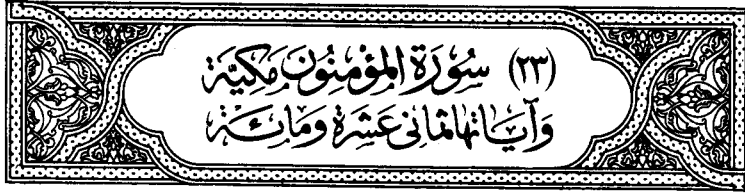 (٢٣) سُورَة المؤمِنُون مَكِيَّة
وَآيَاتها ثماني عَشرة وَمائة